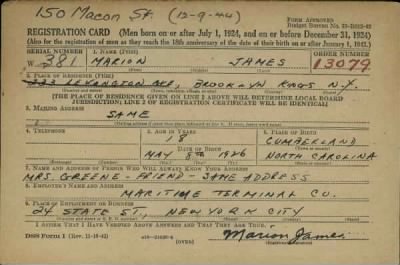 150 Macon St. (12-9-44)
FORM APPROVED
Budget Bureau No.
REGISTRATION CARD (Men born on or after July 1, 1924, and on or before December 31, 1924)
(Also for the registration of men as they reach the 18th anniversary of the date of their birth on or after January 1, 1943.)
SERIAL NUMBER 1. NAME (Print) ORDER NUMBER
W 381 MARION JAMES 13079
2. PLACE OF RESIDENCE (Print)
LEXINGTON AVE, BROOKLYN KINGS N.Y.
[THE PLACE OF RESIDENCE GIVEN ON LINE 2 ABOVE WILL DETERMINE LOCAL BOARD
JURISDICTION; LINE 2 OF REGISTRATION CERTIFICATE WILL BE IDENTICAL]
3. MAILING ADDRESS
SAME
4. TELEPHONE 5. AGE IN YEARS 6. PLACE OF BIRTH
18 CUMBERLAND
DATE OF BIRTH
MAY 8TH 1926 NORTH CAROLINA
7. NAME AND ADDRESS OF PERSON WHO WILL ALWAYS KNOW YOUR ADDRESS
MRS. GREENE - FRIEND - SAME ADDRESS
8. EMPLOYER'S NAME AND ADDRESS
MARITIME TERMINAL CO.
9. PLACE OF EMPLOYMENT OR BUSINESS
24 STATE ST, NEW YORK CITY
I AFFIRM THAT I HAVE VERIFIED ABOVE ANSWERS AND THAT THEY ARE TRUE.
DSS Form 1 (OVER) Marion James